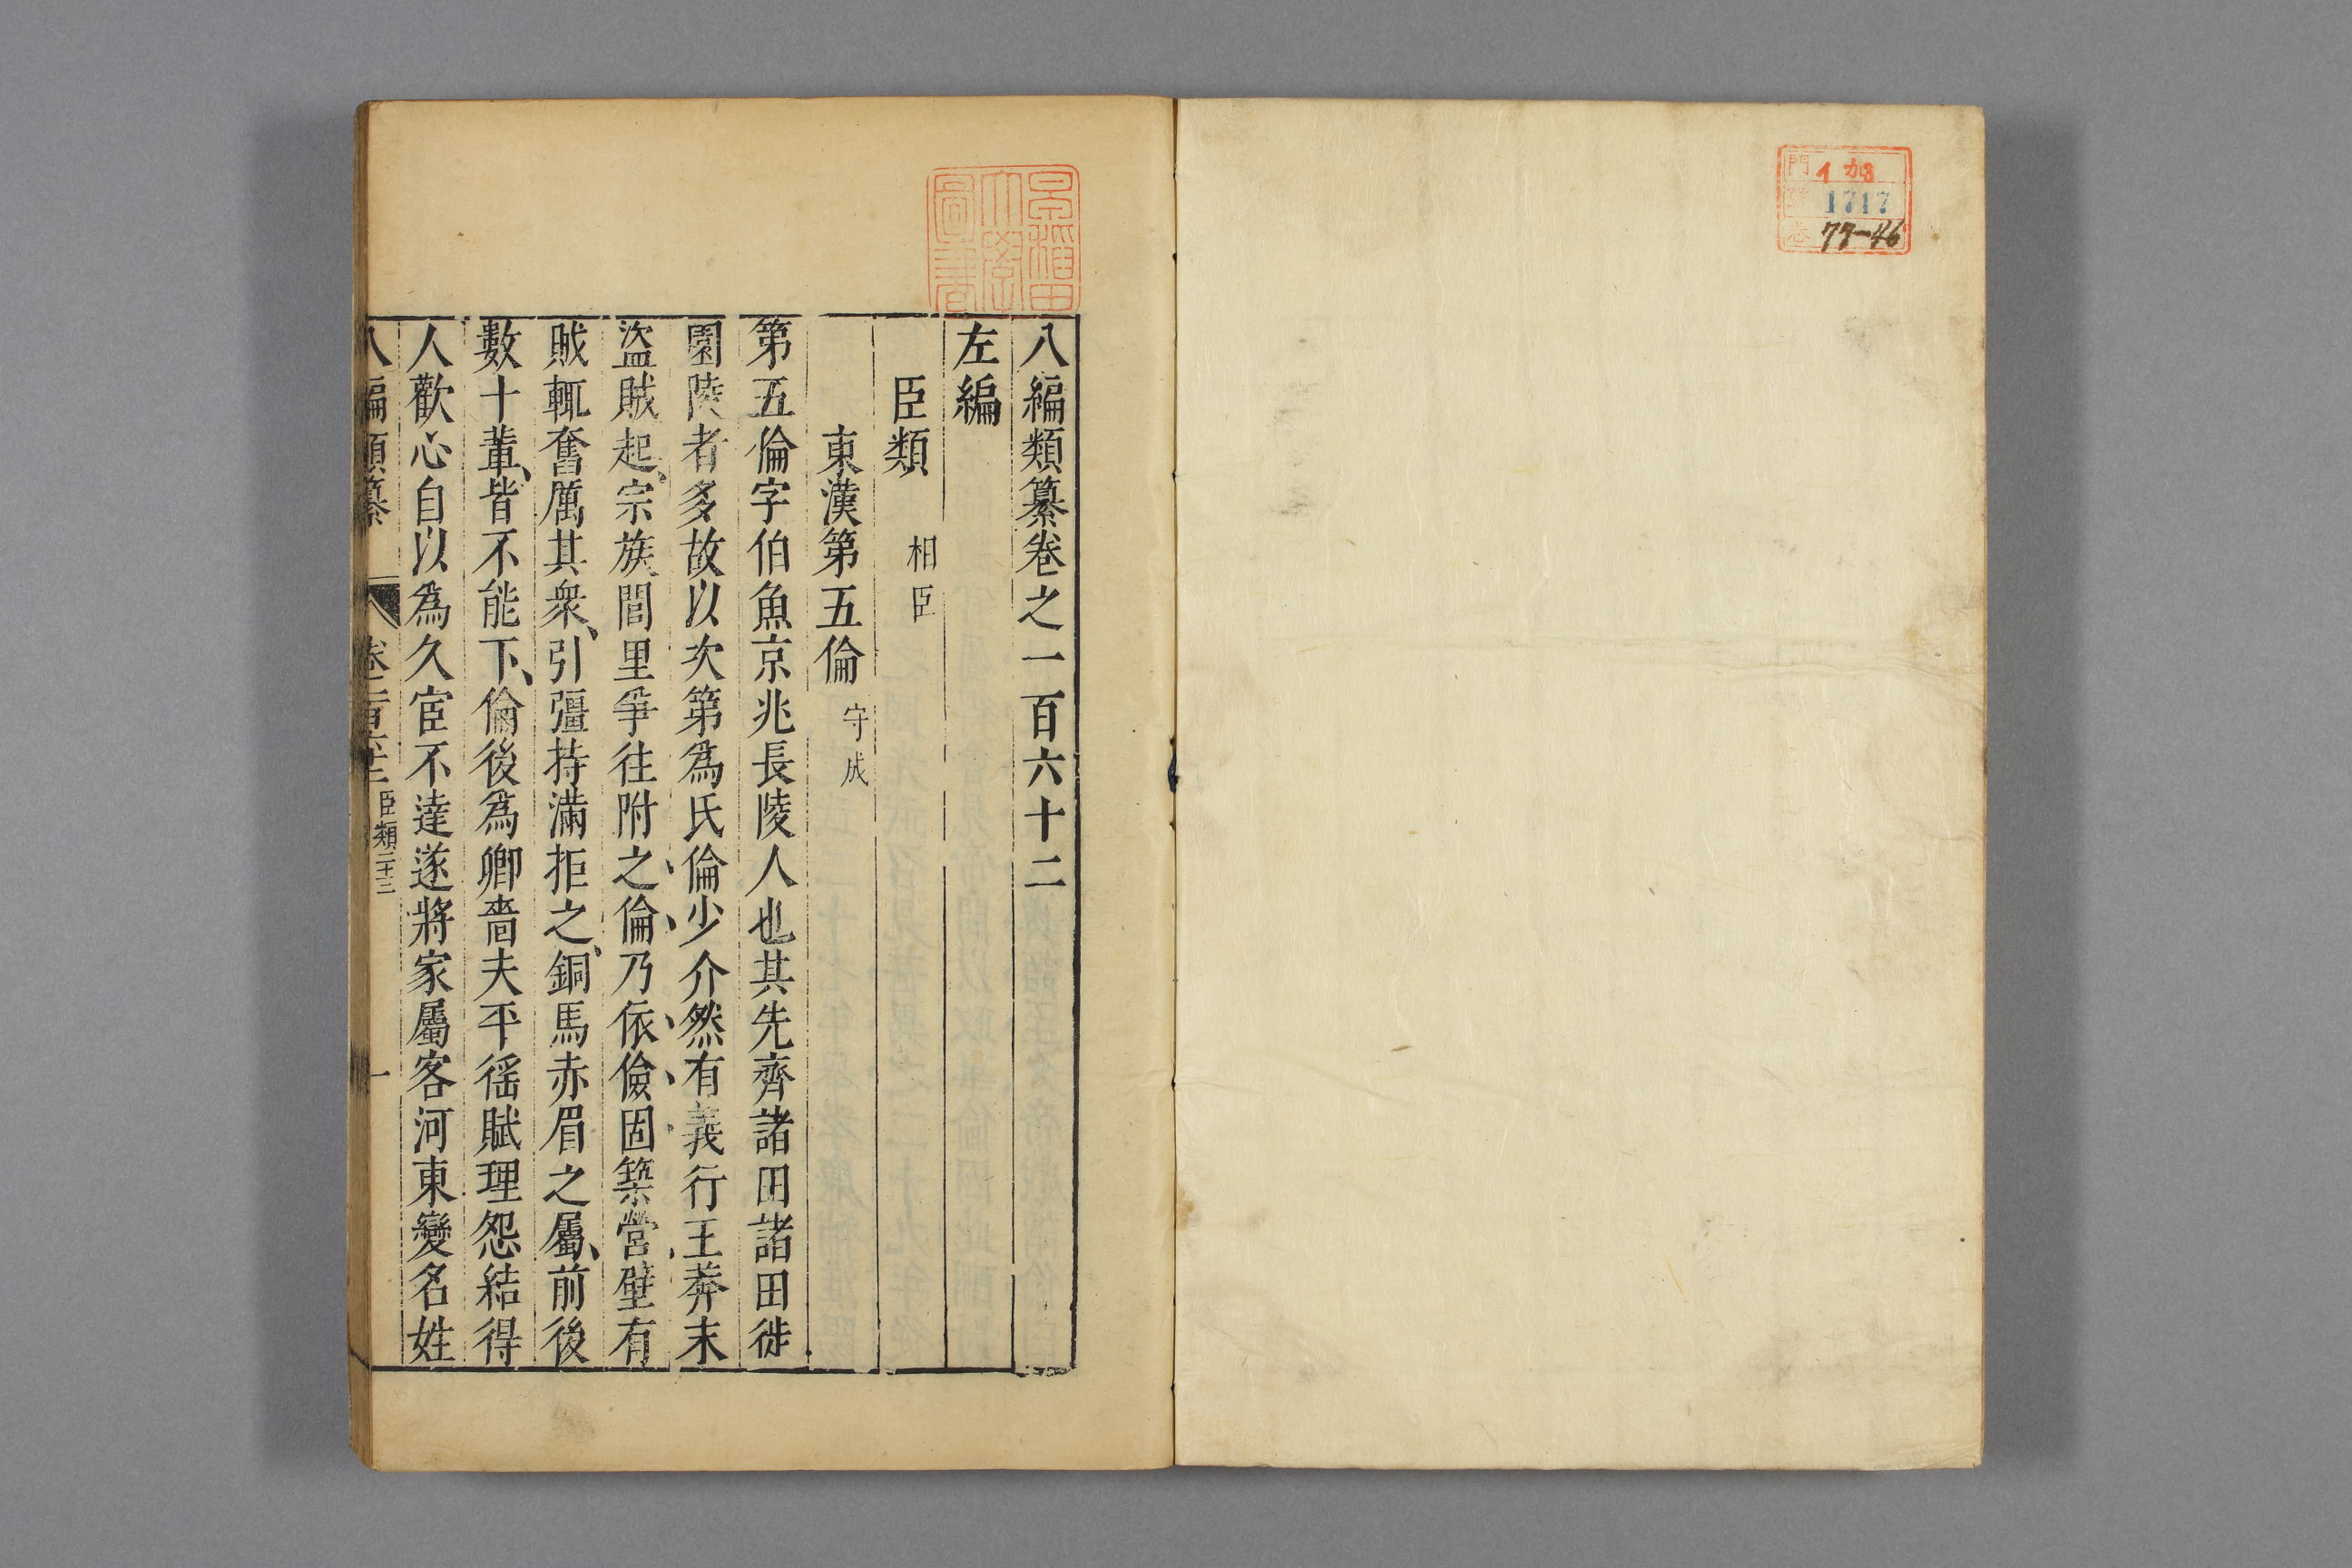 門 イ 加
號 1717
卷 77-46
早稲田
大學
圖書
八編類纂卷之一百六十二
左編
臣類 相臣
東漢第五倫 守成
第五倫字伯魚京兆長陵人也其先齊諸田諸田徙
園陵者多故以次第爲氏倫少介然有義行王莽末
盜賊起、宗族閭里爭往附之、倫、乃依、儉、固、築營、壁有
賊輒奮厲其衆、引彊持滿拒之、銅馬赤眉之屬、前後
數十輩、皆不能下、倫後爲鄉嗇夫平徭賦理怨結得
人歡心自以爲久宦不達遂將家屬客河東變名姓
八編類纂 卷一百六十二 臣類二十三 一